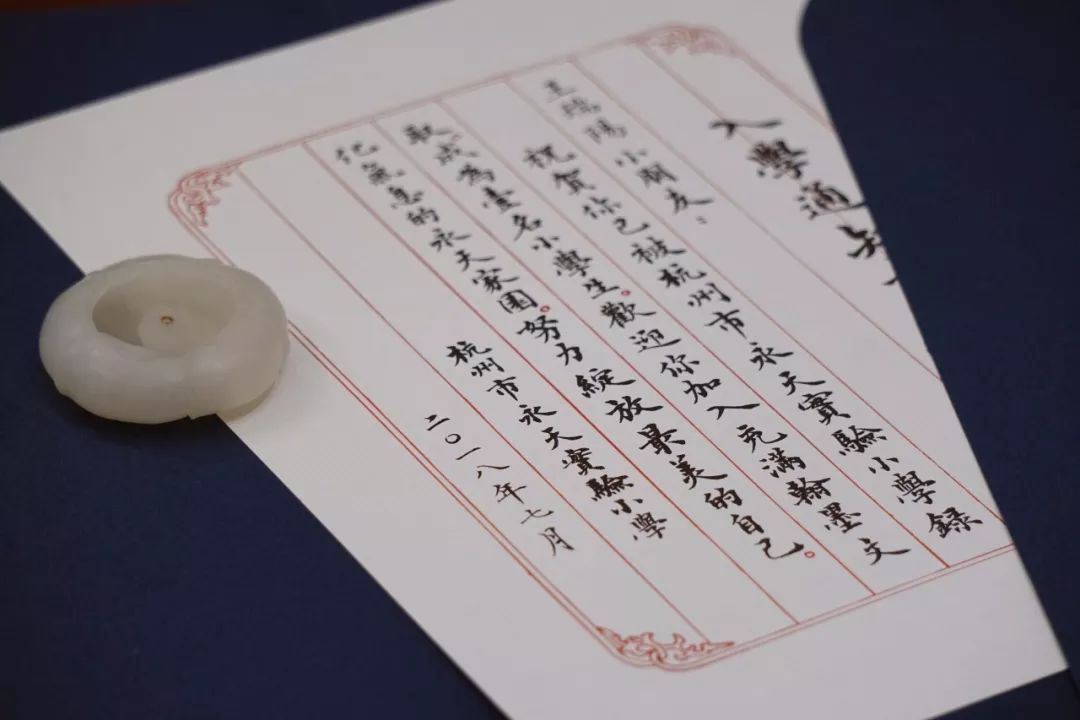 入學通知
王 陽 小朋友：
祝賀你已被杭州市永天實驗小學録
取，成為壹名小學生。歡迎你加入充滿翰墨文
化氣息的永天家園。努力綻放最美的自己。
杭州市永天實驗小學
二〇一八年七月